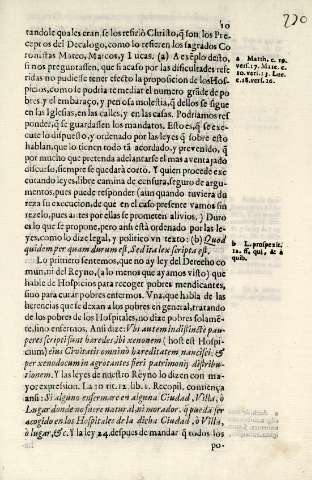 10
270
tandole quales eran, se los refirió Christo, q̃ son los Pre-
ceptos del Decalogo, como lo refieren los sagrados Co-
ronistas Mateo, Marcos, y Lucas. (a) A exẽplo desto,
si nos preguntassen, que si acaso por las dificultades refe
ridas no pudiesse tener efecto la proposicion de los Hos-
picios, como le podria te mediar el numero grãde de po
bres, y el embaraço, y penosa molestia, q̃ dellos se sigue
en las Iglesias, en las calles, y en las casas. Podriamos res
ponder, q̃ se guardassen los mandatos. Esto es, q̃ se exe-
cute lo dispuesto, y ordenado por las leyes q̃ sobre esto
hablan, que lo tienen todo tã acordado, y prevenido, q̃
por mucho que pretenda adelantarse el mas aventajado
discurso, siempre se quedará corto. Y quien procede exe
cutando leyes, libre camina de censura, seguro de argu-
mentos, pues puede responder (aun quando tuviera du
reza su execucion, de que en el caso presente vamos sin
rezelo, pues antes por ellas se prometen alivios.) Duro
es lo que se propone, pero ansi está ordenado por las le
yes, como lo dize legal, y politico vn texto: (b) Quod
quidem per quam durum est. Sed ita lex scripta est.
Lo primero sentemos, que no ay ley del Derecho co
mun, ni del Reyno, (a lo menos que ayamos visto) que
hable de Hospicios para recoger pobres mendicantes,
sino para curar pobres enfermos. Vna, que habla de las
herencias que se dexan a los pobres en general, tratando
de los pobres de los Hospitales, no dize pobres solamẽ-
te, sino enfermos. Ansi dize: Vbi autem indistinctè pau-
peres scripti sunt hæredes, ibi xenonem (host est Hospi-
cium) eius Civitatis omninò hæreditatem nancisci: &
per xenodocum in agrotantes fieri patrimonij distribu-
tionem. Y las leyes de nuestro Reyno lo dizen con ma-
yor expression. La 20. tit. 12. lib. 1. Recopil. comiença
ansi: Si alguno enfermare en alguna Ciudad, Villa, ò
Lugar donde no fuere natural, ni morador, q̃ pueda ser
acogido en los Hospitales de la dicha Ciudad, ò Villa,
ò lugar, &c. Y la ley 24. despues de mandar q̃ todos los
po-
a Matth. c. 19.
vers. 17. Marc. c.
10. vers. 19. Luc.
c. 18. vers. 20.
b L. prospexit,
12. ff. qui, & à
quib.